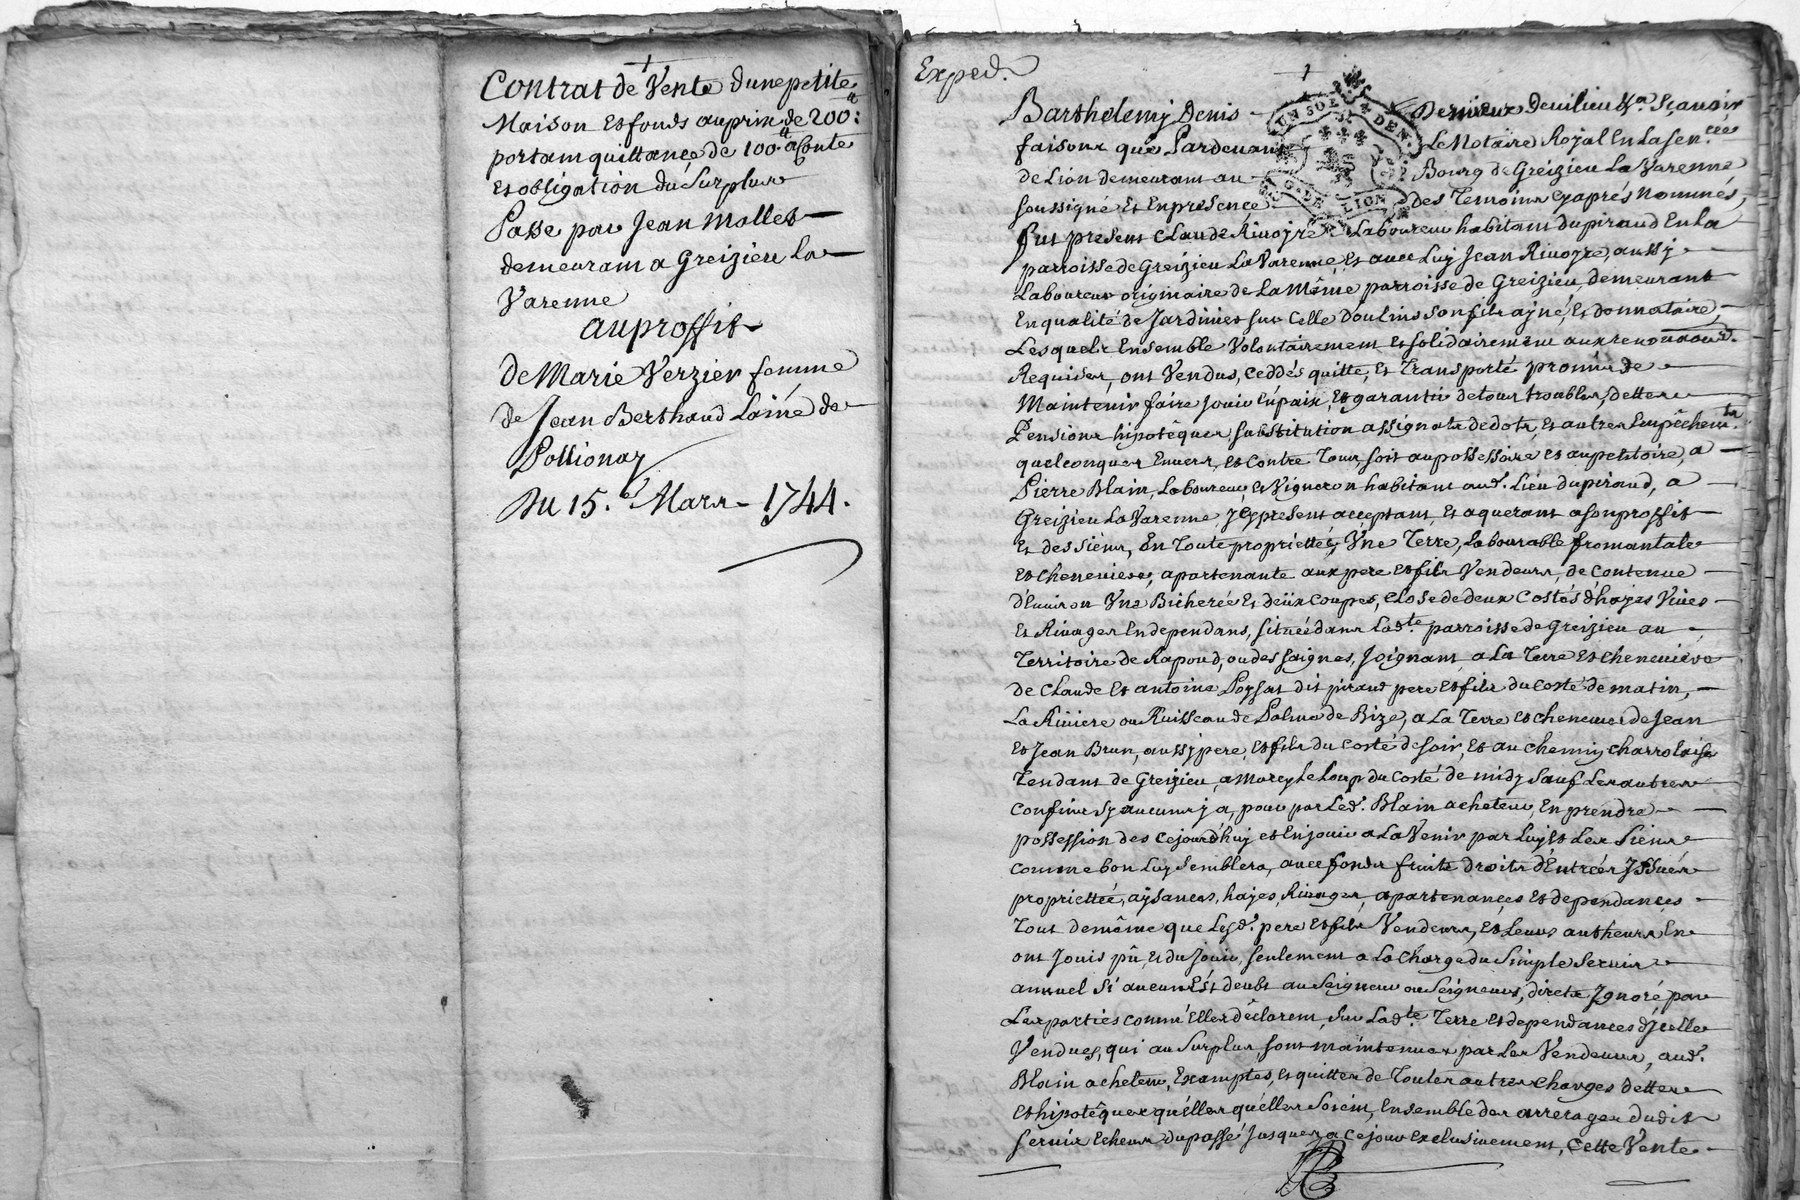 Contrat de Vente dune petite
Maison et fonds au prix de 200:#
portant quittance de 100.# a Conte
et obligation du Surplus
Passe par Jean Mollet
demeurant a Greizieu la
Varenne
au proffit
De Marie Verzier femme
de Jean Berthaud Lainé de
Pollionay
Du 15.e Mars 1744.
Exped.
Barthelemy Denis
faisons que Pardevant Le Notaire Royal En La Sen.cée
de Lion demeurant au Bourg de Greizieu La Varenne
soussigné Et En presence des Temoins Cy aprés Nommés,
fut present Claude Rivoyre Laboureur habitant du piraud En la
parroisse de Greizieu La Varenne, Et avec Luy Jean Rivoyre, aussy
Laboureur originaire de La Même parroisse de Greizieu, demeurant
En qualité de Jardinier sur Celle Doulins son fils ayné, Et donnataire,
Lesquels Ensemble Volontairement Et solidairement aux renon
Requises, ont Vendus, ceddés quitte, Et Transporté promis de
Maintenir faire Jouir En paix, Et garantir de tous troubles, dettes
Pensions hipotêques, substitution assignats de dots, Et autres Empêchem.ts
quelconques Envers, Et Contre Tous, soit au possessoire Et au petitoire, a
Pierre Blain, Laboureur, Et Vigneron habitant aud. Lieu du piraud, a
Greizieu La Varenne Jcy present acceptant, Et aquerant a son proffit
Et des siens, En Toute propriettée, Vne Terre, Labourable fromantale
Et Cheneviere, apartenante aux pere Et fils Vendeurs, de Contenue
d'Environ Vne Bicherée Et deüx Coupes, Close de deux Costés d'hayes Vives
Et Rivages En dependans, située dans Lad.te parroisse de Greizieu au
Territoire de Rapoud, ou des saignes, Joignant a La Terre Et Cheneviere
de Claude Et antoine Poysat dit piraud pere Et fils du Costé de matin,
La Riviere ou Ruisseau de Palme de Bize, a La Terre Et Chenevier de Jean
Et Jean Brun, aussy pere, Et fils du Costé de soir, Et au Chemin Charrolaise
Tendant de Greizieu, a Marcy Le Loup du Costé de midy sauf Les autres
Confins sy aucuns y a, pour par Led. Blain acheteur, En prendre
possession des Cejourd'huy et En jouir a La Venir par Luy Et Les Siens
Comme bon Luy semblera, avec fonds fruits droits d'Entrées Jssuës
propriettée, aysances, hayes, Rivages, apartenances Et dependances
Tout de même que Lesd. pere Et fils Vendeurs, Et Leurs autheurs En
ont Jouis pû, Et du Jouir, seulement a La Charge du Simple Servis
annuel Si aucun Est deubt au Seigneur ou Seigneurs, directs Jgnoré par
Les parties comm'Elles dêclarent, sur Lad.te Terre Et dependances d'Jcelle
Vendues, qui au Surplus, sont maintenues par Les Vendeurs, aud.
Blain acheteur, Exemptes, Et quittes de Toutes autres Charges dettes
Et hipotêques qu'elles qu'elles Soient, Ensemble des arrerages dudit
Servis Echeus du passé Jusques a ce jour Exclusivement, Cette Vente